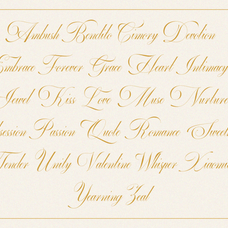 Ambush Cimory Devotion
Embrace Forever Grace Heart Intimacy
Jewel Kiss Love Muse Nurture
session Passion Quote Romance Sweet
Tender Unity Valentine Whisper
Yearning Zeal